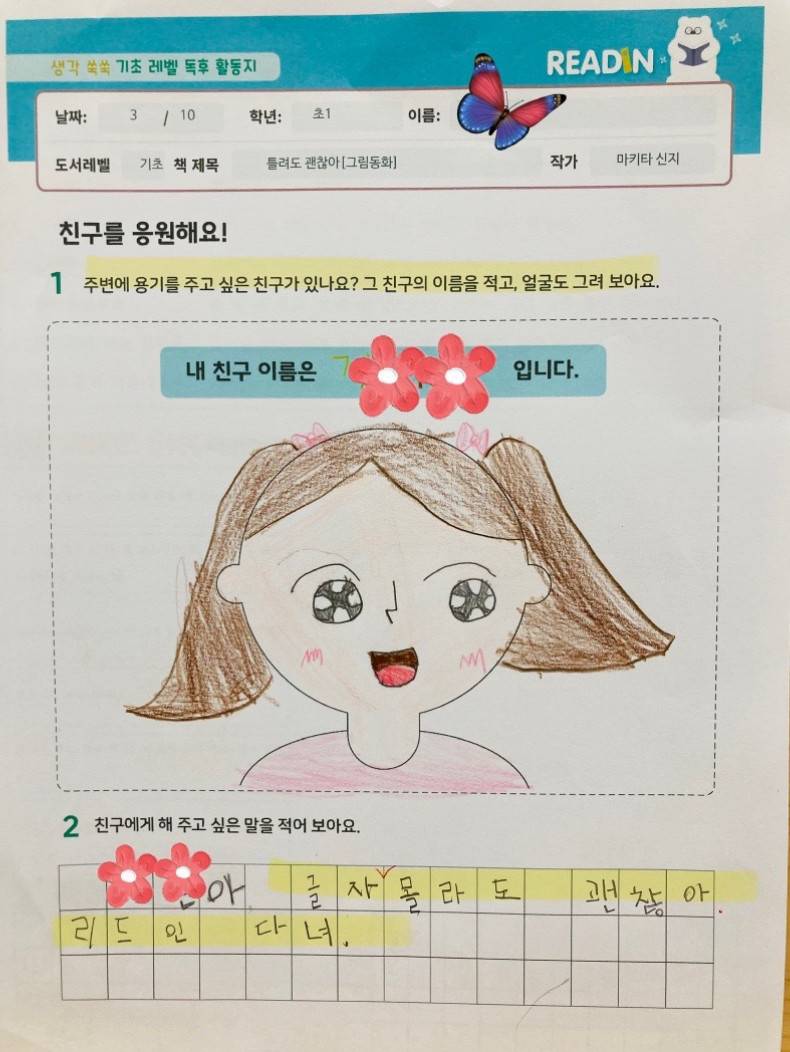 생각 쑥쑥 기초 레벨 독후 활동지
READIN
날짜: 3 / 10 학년: 초1 이름:
도서레벨 기초 책 제목 틀려도 괜찮아[그림동화] 작가 마키타 신지
친구를 응원해요!
1 주변에 용기를 주고 싶은 친구가 있나요? 그 친구의 이름을 적고, 얼굴도 그려 보아요.
내 친구 이름은 입니다.
2 친구에게 해 주고 싶은 말을 적어 보아요.
아 글자몰라도 괜찮아.
리드인 다녀.